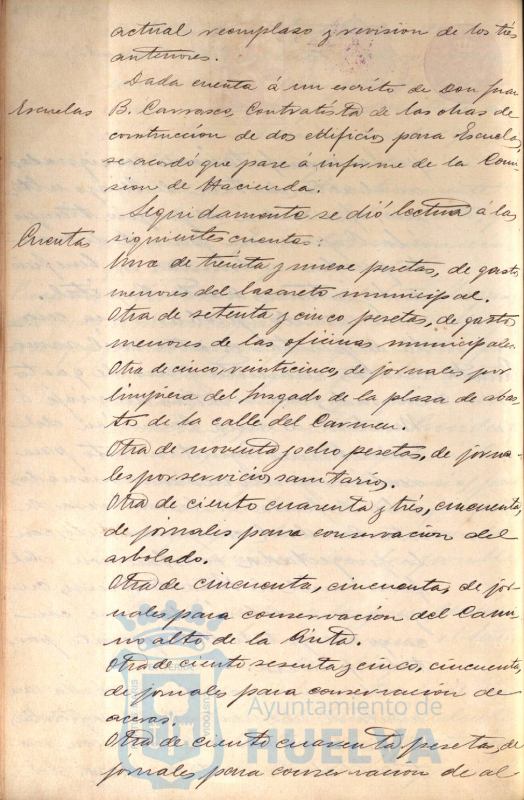 actual reemplazo y revision de los tres
anteriores.
Dada cuenta á un escrito de Don Juan
Escuelas
B. Carrasco, Contratista de las obras de
construccion de dos edificios para Escuelas,
se acordó que pase á informe de la Comi-
sion de Hacienda.
Seguidamente se dió lectura á las
Cuentas
siguientes cuentas:
Una de treinta y nueve pesetas, de gastos
menores del lazareto municipal.
Otra de setenta y cinco pesetas, de gastos
menores de las oficinas municipales.
Otra de cinco, veinticinco, de jornales por
limpiera del Juzgado de la plaza de abas-
to de la calle del Carmen.
Otra de noventa y ocho pesetas, de jorna-
les por servicios sanitarios.
Otra de ciento cuarenta y trés, cincuenta,
de jornales para conservacion del
arbolado.
Otra de cincuenta, cincuenta, de jor-
nales para conservacion del Cami-
no alto de la Cinta.
Otra de ciento sesenta y cinco, cincuenta,
de jornales para conservacion de
aceras.
Otra de ciento cuarenta pesetas, de
jornales para conservacion de al
Ayuntamiento de
HUELVA